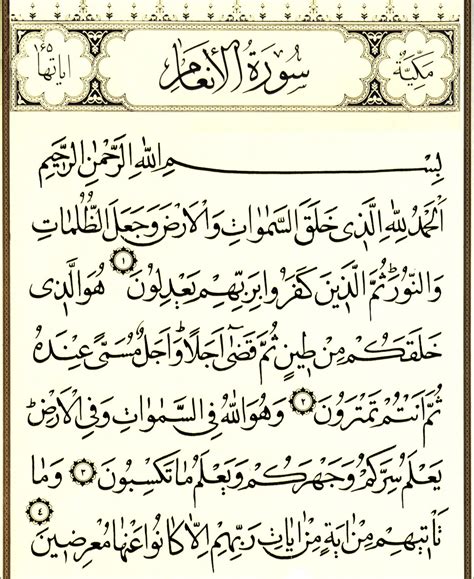 مكية سورة الأنعام اياتها ١٦٥
بِسْمِ اللهِ الرَّحْمٰنِ الرَّحِيمِ
اَلْحَمْدُ لِلّٰهِ الَّذِى خَلَقَ السَّمٰوَاتِ وَالْاَرْضَ وَجَعَلَ الظُّلُمَاتِ
وَالنُّورَ ثُمَّ الَّذِينَ كَفَرُوا بِرَبِّهِمْ يَعْدِلُونَ ١ هُوَ الَّذِى
خَلَقَكُمْ مِنْ طِينٍ ثُمَّ قَضٰٓى اَجَلًا وَاَجَلٌ مُسَمًّى عِنْدَهُ
ثُمَّ اَنْتُمْ تَمْتَرُونَ ٢ وَهُوَ اللهُ فِى السَّمٰوَاتِ وَفِى الْاَرْضِ
يَعْلَمُ سِرَّكُمْ وَجَهْرَكُمْ وَيَعْلَمُ مَا تَكْسِبُونَ ٣ وَمَا
تَأْتِيهِمْ مِنْ اٰيَةٍ مِنْ اٰيَاتِ رَبِّهِمْ اِلَّا كَانُوا عَنْهَا مُعْرِضِينَ ٤